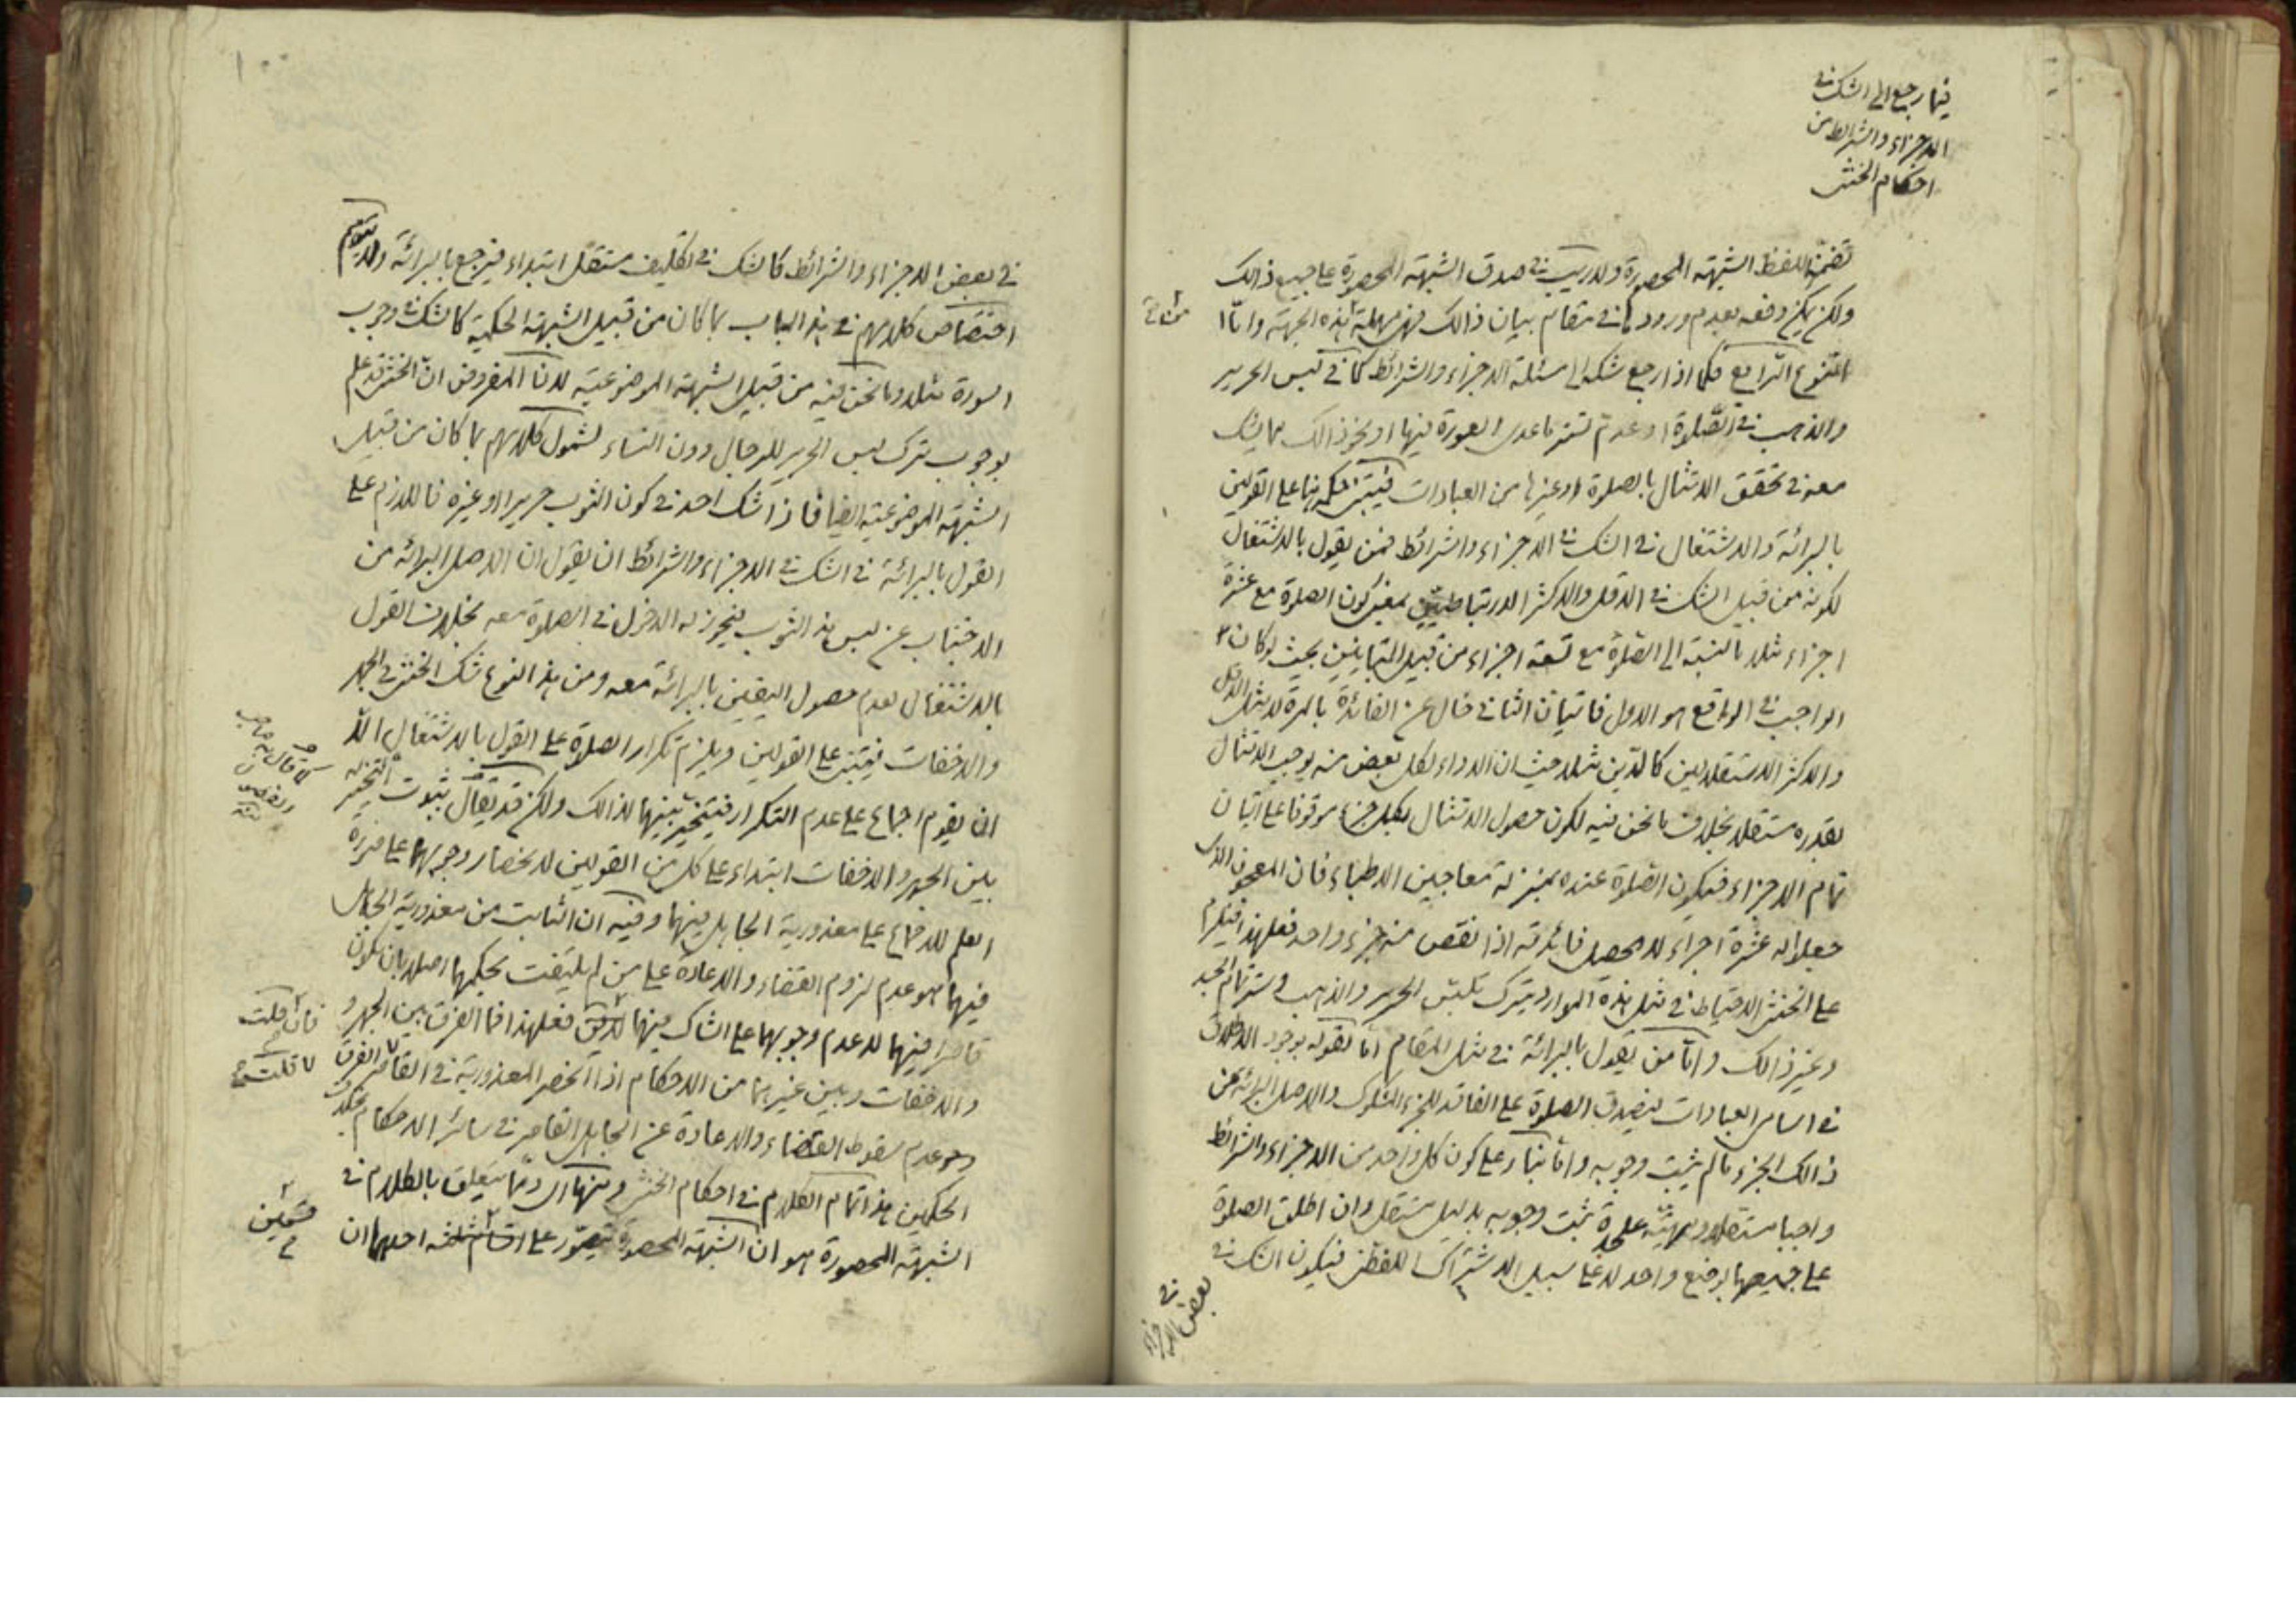 فيما رجع الى الشك في
الاجزاء والشرائط من
احكام الخنثى
تضمن للفظ الشبهة المحصورة ولا ريب في صدق الشبهة المحصورة على جميع ذالك
ولكن يمكن دفعه بعدم ورودها في مقام بيان ذالك فهي مهملة من هذه الجهة وامّا
النوع الرابع فكما اذا رجع شكه الى مسئلة الاجزاء والشرائط كما في لبس الحرير
والذهب في الصّلوة او عدم تستر ما عدى العورة فيها او نحو ذالك مما يشك
معه في تحقق الامتثال بالصلوة او غيرها من العبادات فيبتنى حكمه هنا على القولين
بالبرائة والاشتغال في الشك في الاجزاء والشرائط فمن يقول بالاشتغال
لكونه من قبيل الشك في الاقل والاكثر الارتباطيين بمعنى كون الصلوة مع عشرة
اجزاء مثلا بالنسبة الى الصّلوة مع تسعة اجزاء من قبيل المتباينين بحيث لو كان
الواجب في الواقع هو الاول فاتيان الثاني خال عن الفائدة بالمرة لا مثل الاقل
والاكثر الاستقلاليين كالدّين مثلا حيث ان الاداء لكل بعض منه يوجب الامتثال
بقدره مستقلا بخلاف ما نحن فيه لكون حصول الامتثال بكل جزء موقوفا على اتيان
تمام الاجزاء فتكون الصّلوة عنده بمنزلة معاجين الاطباء فان المعجون الذى
جعلوا له عشرة اجزاء لا يحصل فائدته اذا نقص منه جزء واحد فعلى هذا فيلزم
على الخنثى الاحتياط في مثل هذه الموارد بترك تلبّس الحرير والذهب وستر تمام الجسد
وغير ذالك وامّا من يقول بالبرائة في مثل المقام امّا لقوله بوجود الاطلاق
في اسامى العبادات ليصدق الصلوة على الفاقد للجزء المشكوك والاصل البرائة عن
ذالك الجزء ما لم يثبت وجوبه وامّا بناء على كون كل واحد من الاجزاء والشرائط
واجبا مستقلا وبهيئة عليحدة ثبت وجوبه بدليل مستقل وان اطلق الصلوة
على جميعها بوضع واحد لا على سبيل الاشتراك اللفظي فيكون الشك في
بعض الاجزاء
في بعض الاجزاء والشرائط كالشك في تكليف مستقل ابتداء فيرجع بالبرائة ولا يتوهم
اختصاص كلامهم في هذا الباب بما كان من قبيل الشبهة الحكمية كالشك في وجوب
السورة مثلا وما نحن فيه من قبيل الشبهة الموضوعية لانّ المفروض انّ الخنثى قد علم
بوجوب ترك لبس الحرير للرجال دون النساء لشمول كلامهم بما كان من قبيل
الشبهة الموضوعية ايضا فاذا شك احد في كون الثوب حريرا او غيره فاللازم على
القول بالبرائة في الشك في الاجزاء والشرائط ان يقول ان الاصل البرائة من
الاجتناب عن لبس هذا الثوب فيجوز له الدخول في الصلوة معه بخلاف القول
بالاشتغال لعدم حصول اليقين بالبرائة معه ومن هذا النوع شك الخنثى في الجهر
والاخفات فيبتنى على القولين ويلزم تكرار الصلوة على القول بالاشتغال الّا
ان يقوم اجماع على عدم التكرار فيتخير بينهما لذالك ولكن قد يقال بثبوت التخيير له
بين الجهر والاخفات ابتداء على كل من القولين لانحصار وجوبهما على صورة
العلم للاجماع على معذورية الجاهل فيهما وفيه ان الثابت من معذورية الجاهل
فيهما هو عدم لزوم القضاء والاعادة على من لم يلتفت بحكمهما اصلا بان يكون
قاصرا فيهما لا عدم وجوبهما على الشاك فيهما فعلى هذا فما الفرق بين الجهر و
والاخفات وبين غيرهما من الاحكام اذا انحصر المعذورية في القاصر الفرق
وهو عدم سقوط القضاء والاعادة عن الجاهل القاصر في سائر الاحكام بخلاف
الحكمين هذا تمام الكلام في احكام الخنثى ومنها اى وممّا يتعلق بالكلام في
الشبهة المحصورة هو ان الشبهة المحصورة تتصوّر على اقسام ثلثة احدها ان
كما قال به صاحب
فان قلت
قلت
قسمين